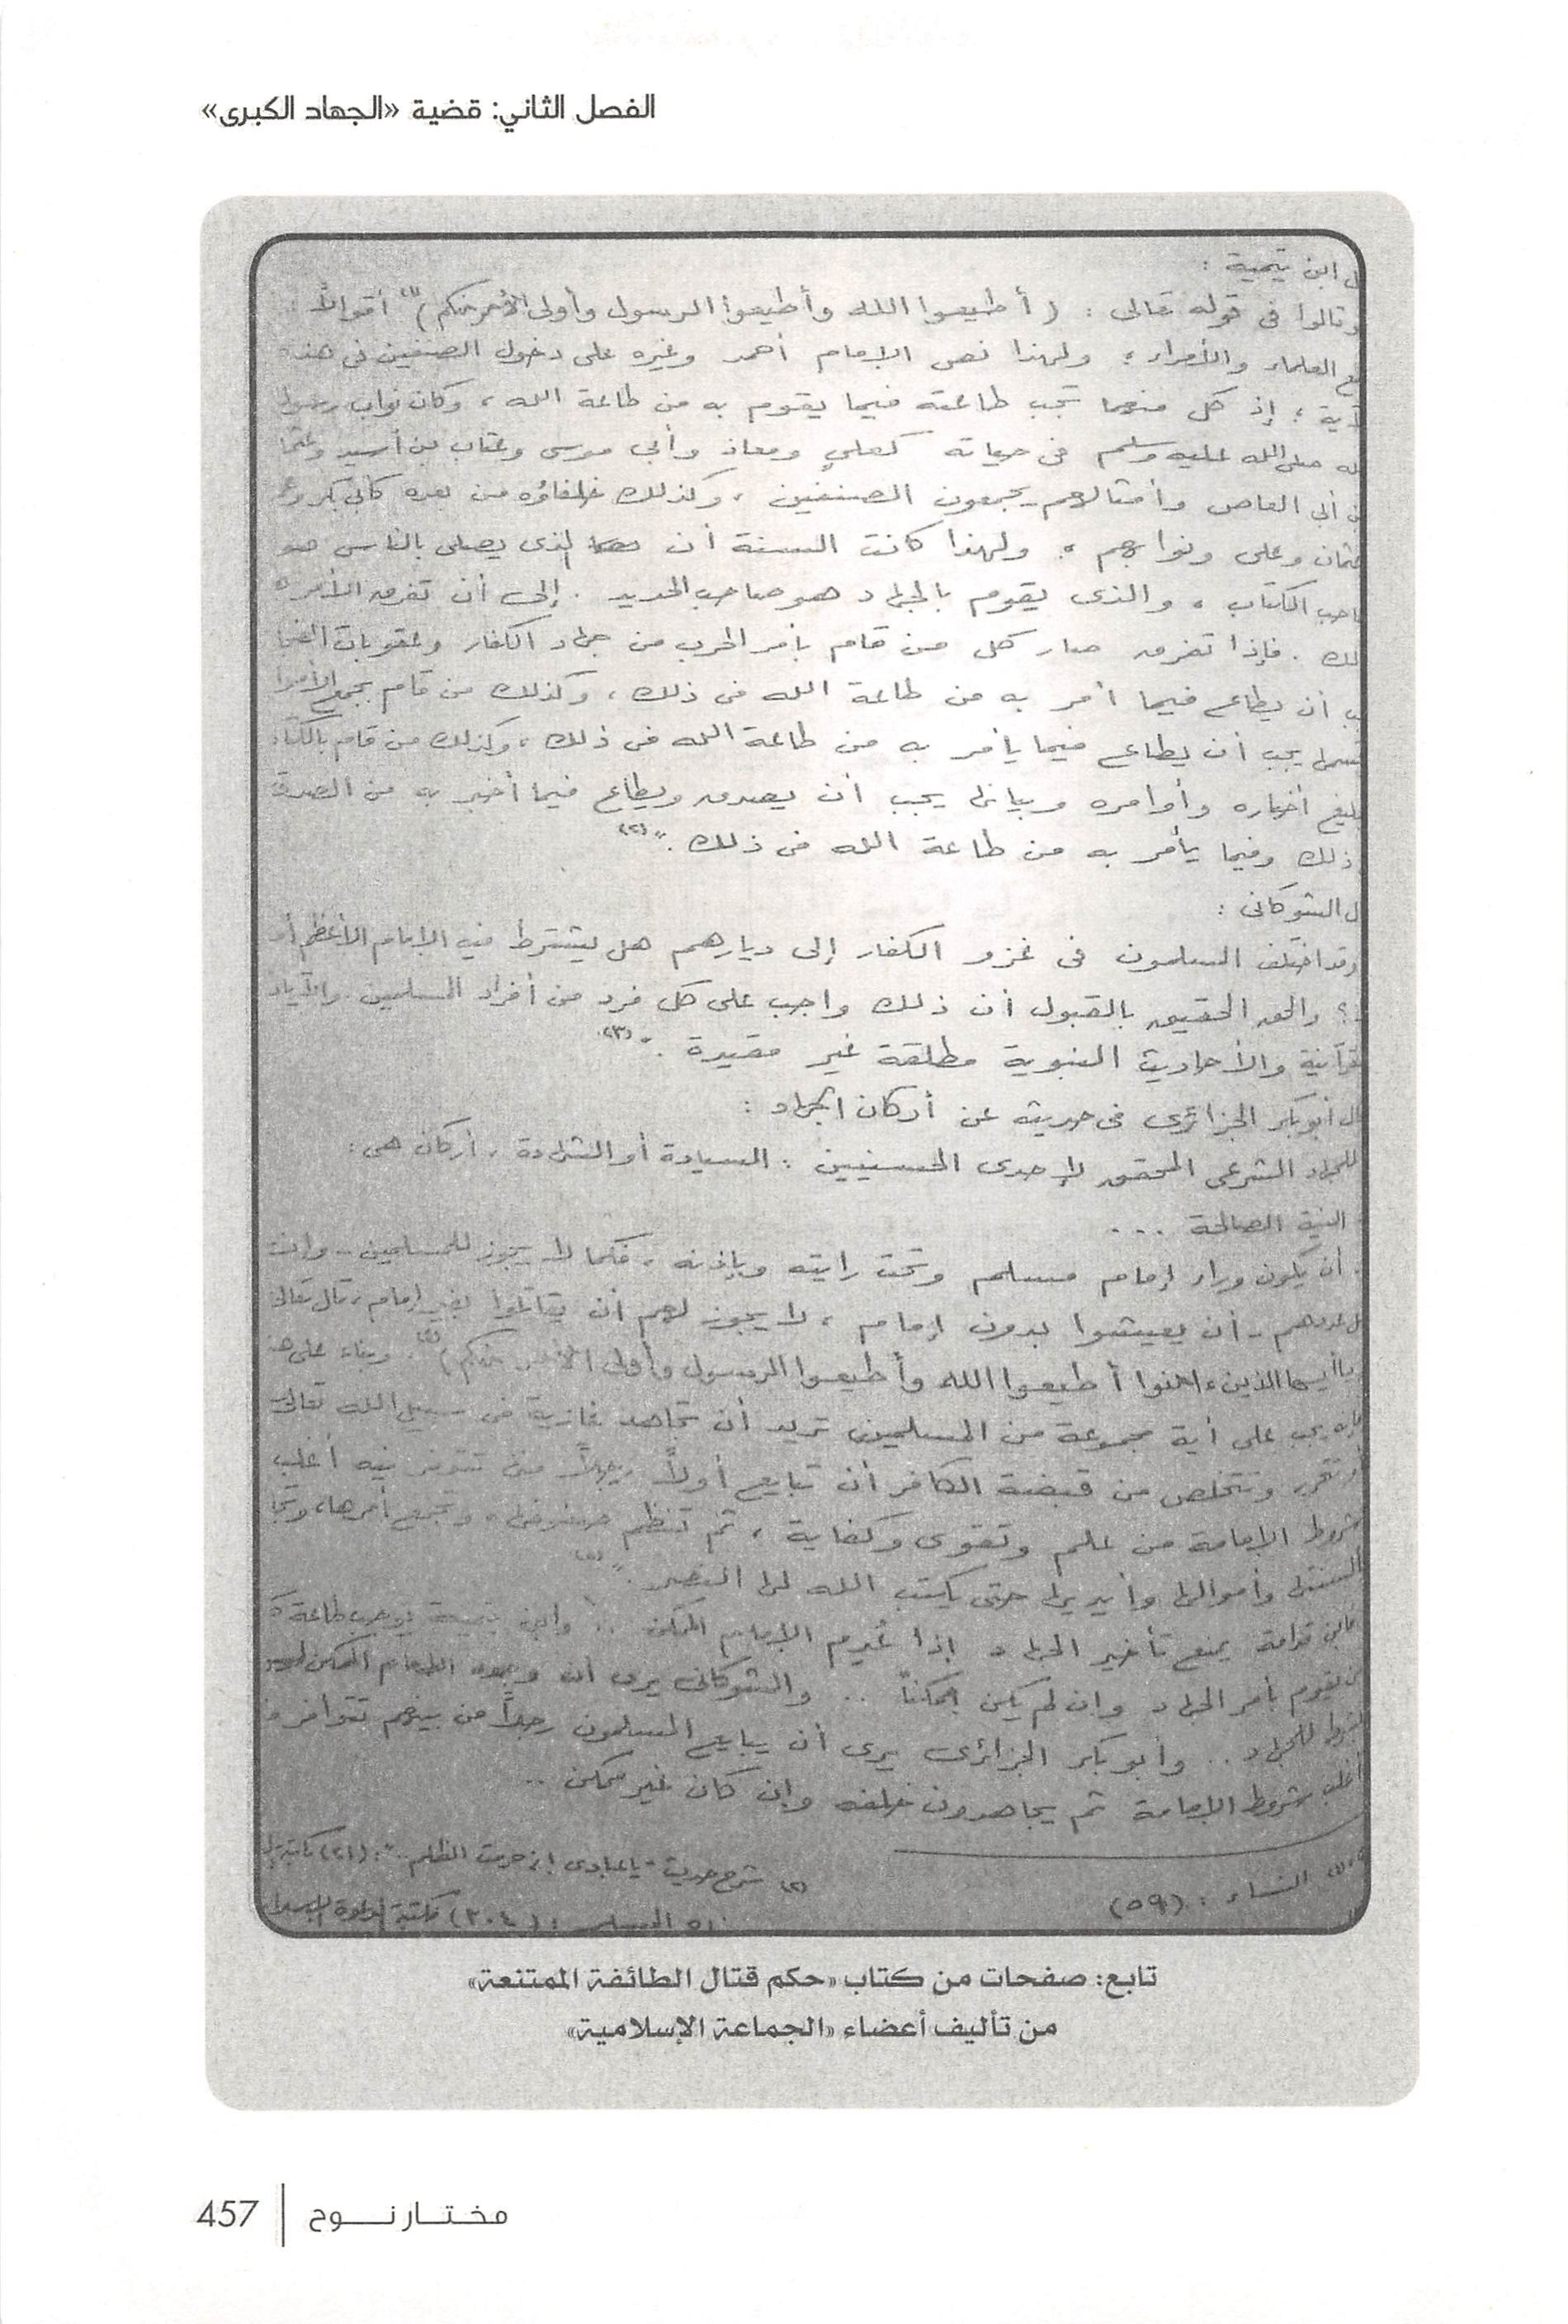 الفصل الثاني: قضية «الجهاد الكبرى»
ل ابن تيمية :
وقالوا فى قوله تعالى : ( أطيعوا الله وأطيعوا الرسول وأولى الأمر منكم )(١) أقوالاً :
العلماء والأمراء ؛ ولهذا نص الإمام أحمد وغيره على دخول الصنفين فى هذه
آية ؛ إذ كل منهما تجب طاعته فيما يقوم به من طاعة الله ، وكان نواب رسول
له صلى الله عليه وسلم فى حياته كعلي ومعاذ وأبي موسى وعتاب بن أسيد وعثما
ن أبى العاص وأمثالهم يجمعون الصنفين ، وكذلك خلفاؤه من بعده كأبى بكر وعمر
عثمان وعلى ونوابهم . ولهذا كانت السنة أن الذى يصلى بالناس هو
احب الكتاب ، والذى يقوم بالجهاد هو صاحب الحديد . إلى أن تفرق الأمر
لك . فإذا تفرق صار كل من قام بأمر الحرب من جهاد الكفار وعقوبات الفجا
ب أن يطاع فيما أمر به من طاعة الله فى ذلك ، وكذلك من قام بجمع الأموا
يجب أن يطاع فيما يأمر به من طاعة الله فى ذلك ، وكذلك من قام بالكتا
بليغ أخباره وأوامره وبيانها يجب أن يصدق ويطاع فيما أخبر به من الصدق
ذلك وفيما يأمر به من طاعة الله فى ذلك ."(٢)
ل الشوكانى :
وقد اختلف المسلمون فى غزو الكفار إلى ديارهم هل يشترط فيه الإمام الأعظم أم
لا؟ والحق الحقيق بالقبول أن ذلك واجب على كل فرد من أفراد المسلمين . والآيات
قرآنية والأحاديث النبوية مطلقة غير مقيدة ."(٣)
ال أبو بكر الجزائرى فى حديثه عن أركان الجهاد :
للجهاد الشرعى المحقق لإحدى الحسنيين : السيادة أو الشهادة ، أركان هى :
النية الصالحة ...
أن يكون وراء إمام مسلم وتحت رايته وبإذنه ، فكما لا يجوز للمسلمين - وإن
ل عددهم - أن يعيشوا بدون إمام ، لا يجوز لهم أن يقاتلوا بغير إمام ، قال تعالى
يا أيها الذين ءامنوا أطيعوا الله وأطيعوا الرسول وأولى الأمر منكم )(٤) . وبناء على هذ
فإنه يجب على أية مجموعة من المسلمين تريد أن تجاهد غازية فى سبيل الله تعالى
أو تتحرر وتتخلص من قبضة الكافر أن تبايع أولاً رجلاً ممن تتوفر فيه أغلب
شروط الإمامة من علم وتقوى وكفاية ، ثم تنظم صفوفها ، وتجمع أمرها ، وتجا
وأموالها وأيديها حتى يكتب الله لها النصر ."
فابن قدامة يمنع تأخير الجهاد إذا عُدِم الإمام الممكن .. وابن تيمية يوجب طاعة
ن يقوم بأمر الجهاد وإن لم يكن ممكناً .. والشوكانى يرى أن وجود الإمام الممكن ليس
شرطاً للجهاد .. وأبو بكر الجزائرى يرى أن يبايع المسلمون رجلاً من بينهم تتوافر فـ
أغلب شروط الإمامة ثم يجاهدون خلفه وإن كان غير ممكن ..
النساء : (٥٩)
(٢) شرح حديث "يا عبادى إنى حرمت الظلم .." : (٤١)
المسلم : (٣٠٤) مكتبة
تابع: صفحات من كتاب «حكم قتال الطائفة الممتنعة»
من تأليف أعضاء «الجماعة الإسلامية»
مختار نوح
457